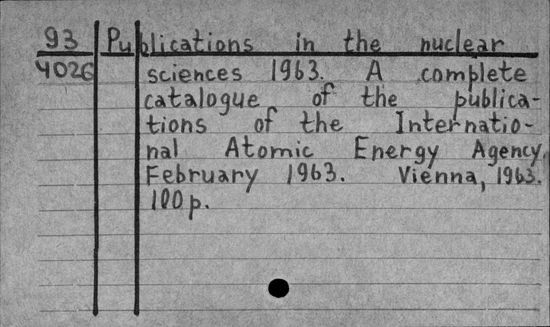 93 Publications in the nuclear
4026 sciences 1963. A complete
catalogue of the publica-
tions of the Internatio-
nal Atomic Energy Agency.
February 1963. Vienna, 1963.
100 p.